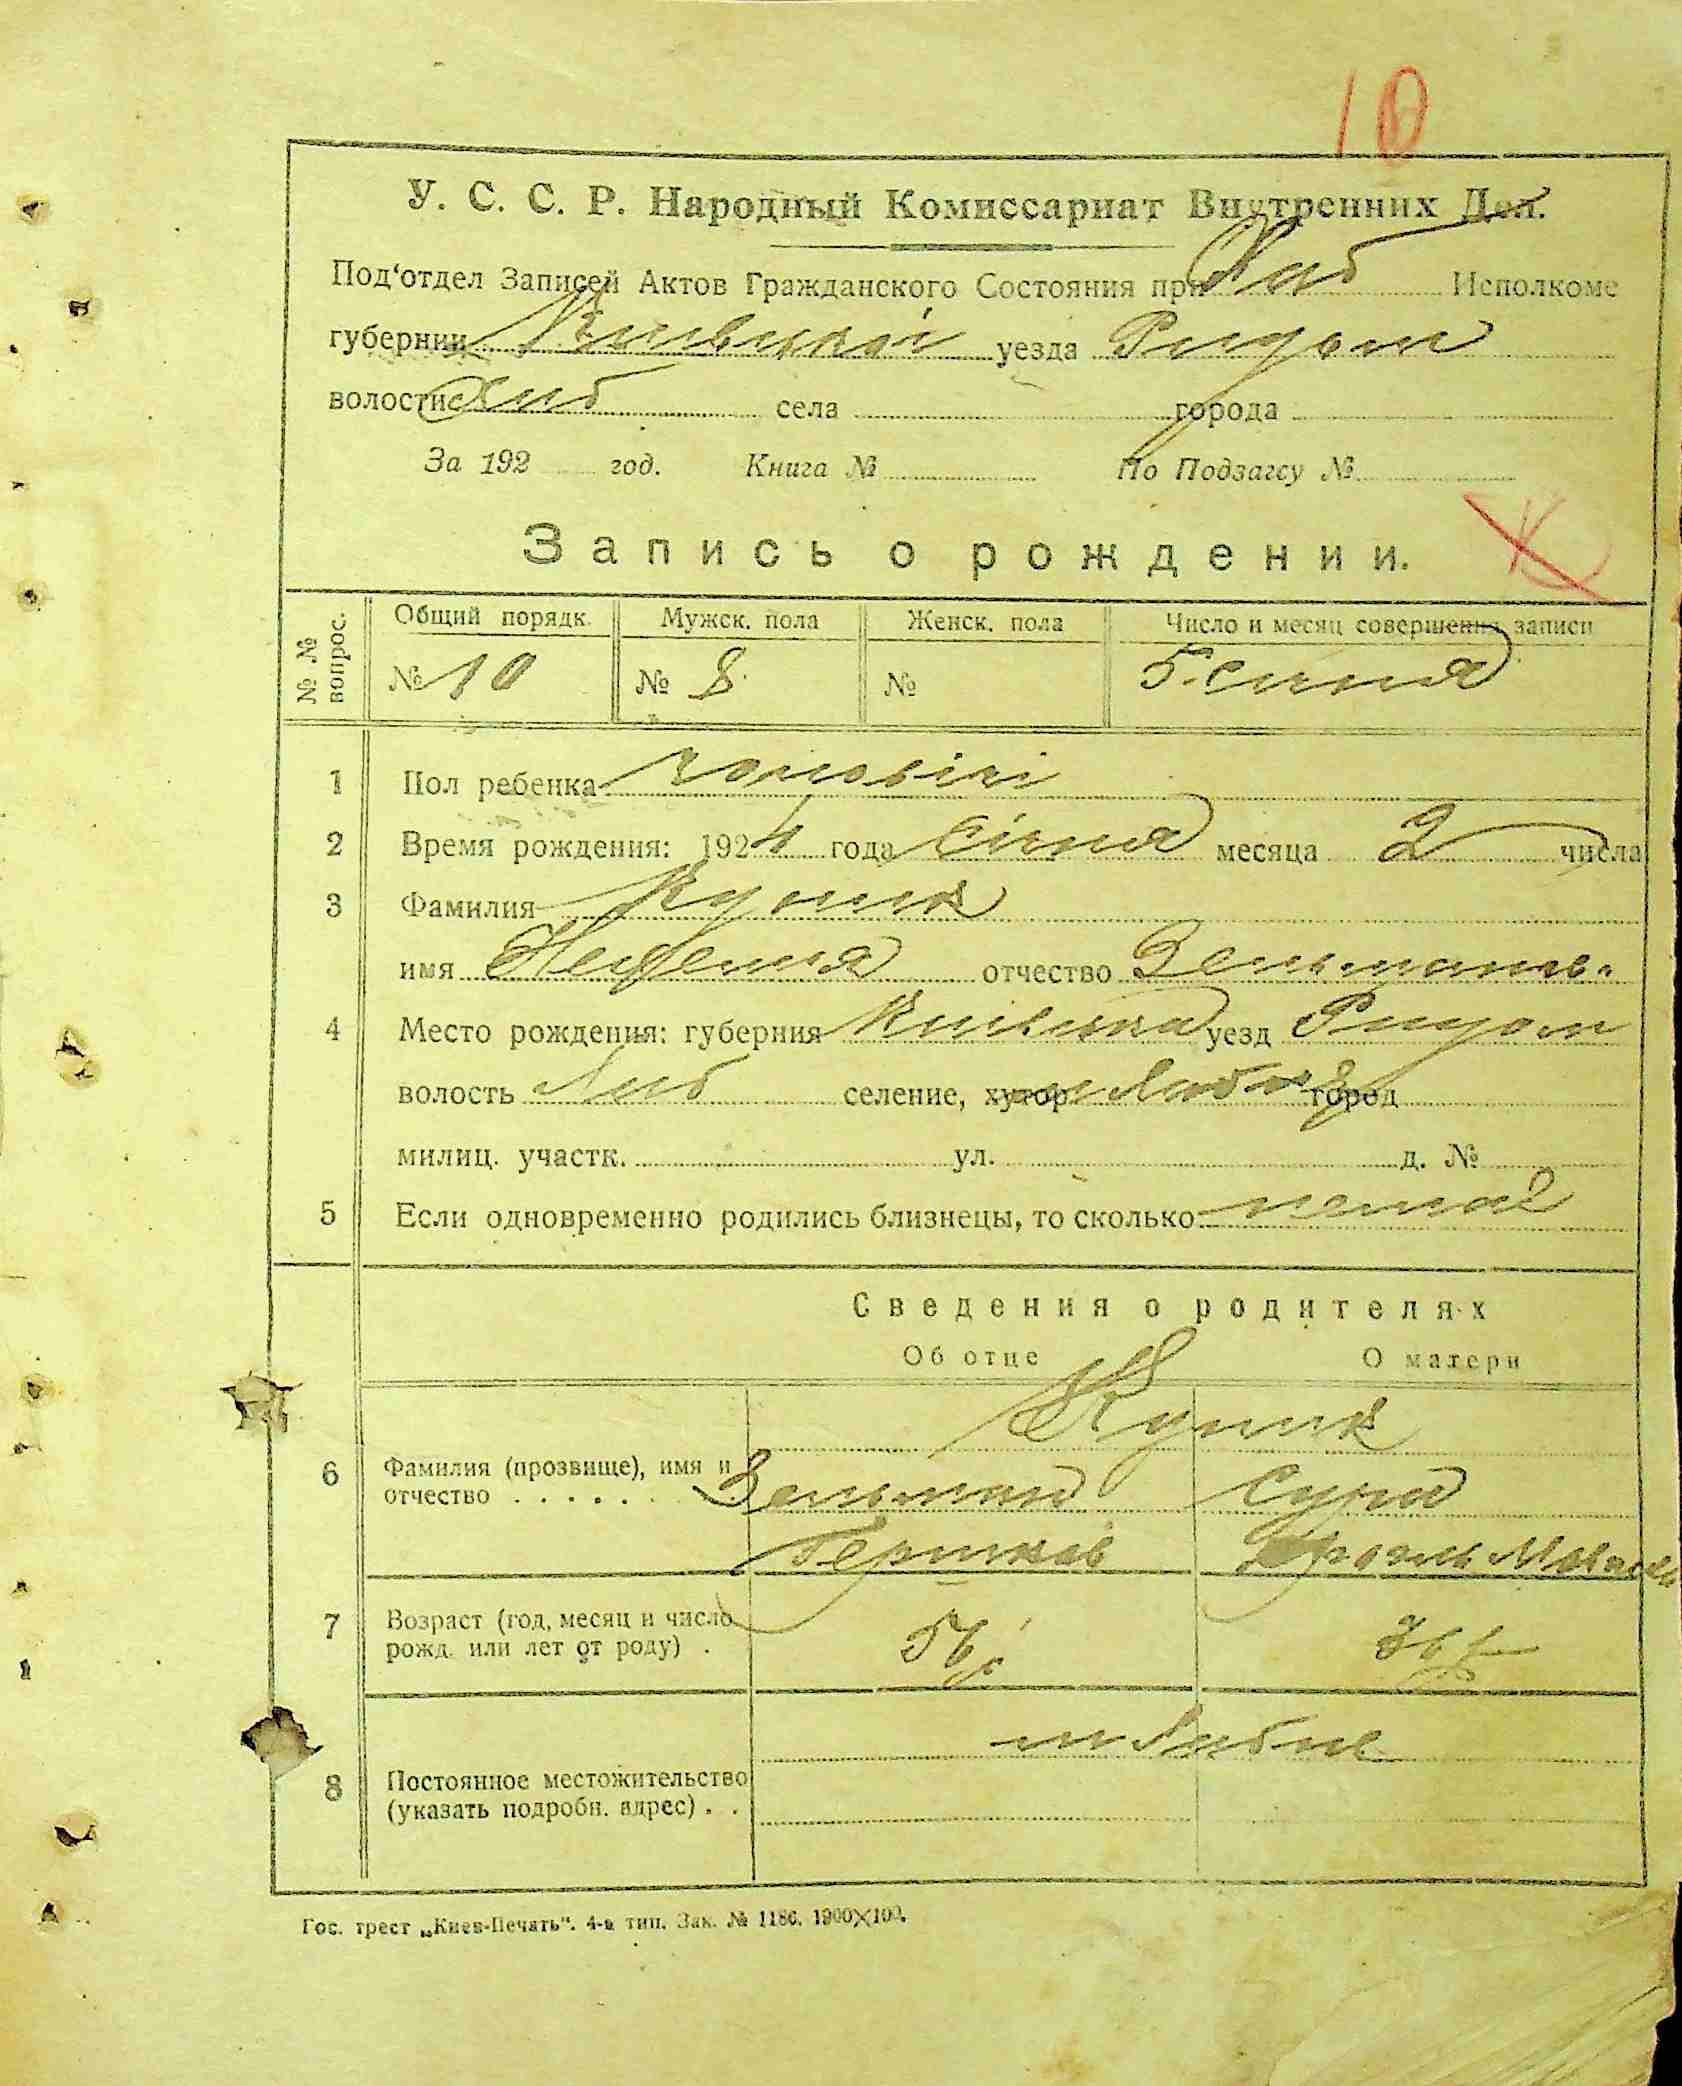 10
У. С. С. Р. Народный Комиссариат Внутренних Дел.
Под'отдел Записей Актов Гражданского Состояния при Хаб Исполкоме
губернии Київської уезда Радом
волости Хаб села города
За 192 год. Книга № По Подзагсу №
Запись о рождении.
№ № вопрос.
Общий порядк. Мужск. пола Женск. пола Число и месяц совершения записи
№ 10 № 8. № 5. січня
1 Пол ребенка чоловічі
2 Время рождения: 1924 года січня месяца 2 числа
3 Фамилия Кушик
имя отчество Зельманов.
4 Место рождения: губерния Київська уезд Радом
волость Хаб селение, хутор м Хабне город
милиц. участк. ул. д. №
5 Если одновременно родились близнецы, то сколько: немає
Сведения о родителях
Об отце О матери
Кушик
6 Фамилия (прозвище), имя и Зельман Сура
отчество . . . . . . Гершков
7 Возраст (год, месяц и число
рожд. или лет от роду) .
м Хабне
8 Постоянное местожительство
(указать подробн. адрес) . .
Гос. трест „Киев-Печать". 4-а тип. Зак. № 1186. 1900×100.